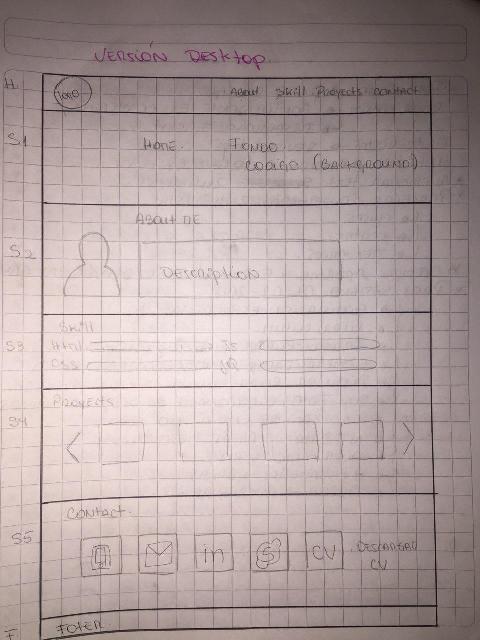 VERSIÓN DESKTOP.
H
LOGO
About Skill Proyects Contact
S1
HOME.
FONDO
CODIGO (BACKGROUND)
S2
About ME
DESCRIPTION
S3
Skill
Html
JS
CSS
JQ
S4
PROYECTS
< >
S5
Contact.
in
S
CV
DESCARGAR
CV
F
FOTER